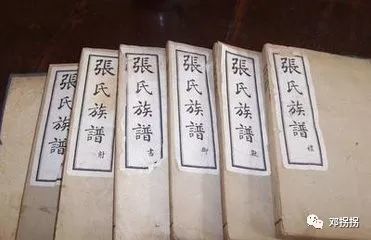 張氏族譜 禮
張氏族譜 樂
張氏族譜 御
張氏族譜 書
張氏族譜 射
張氏族譜
邓拐拐